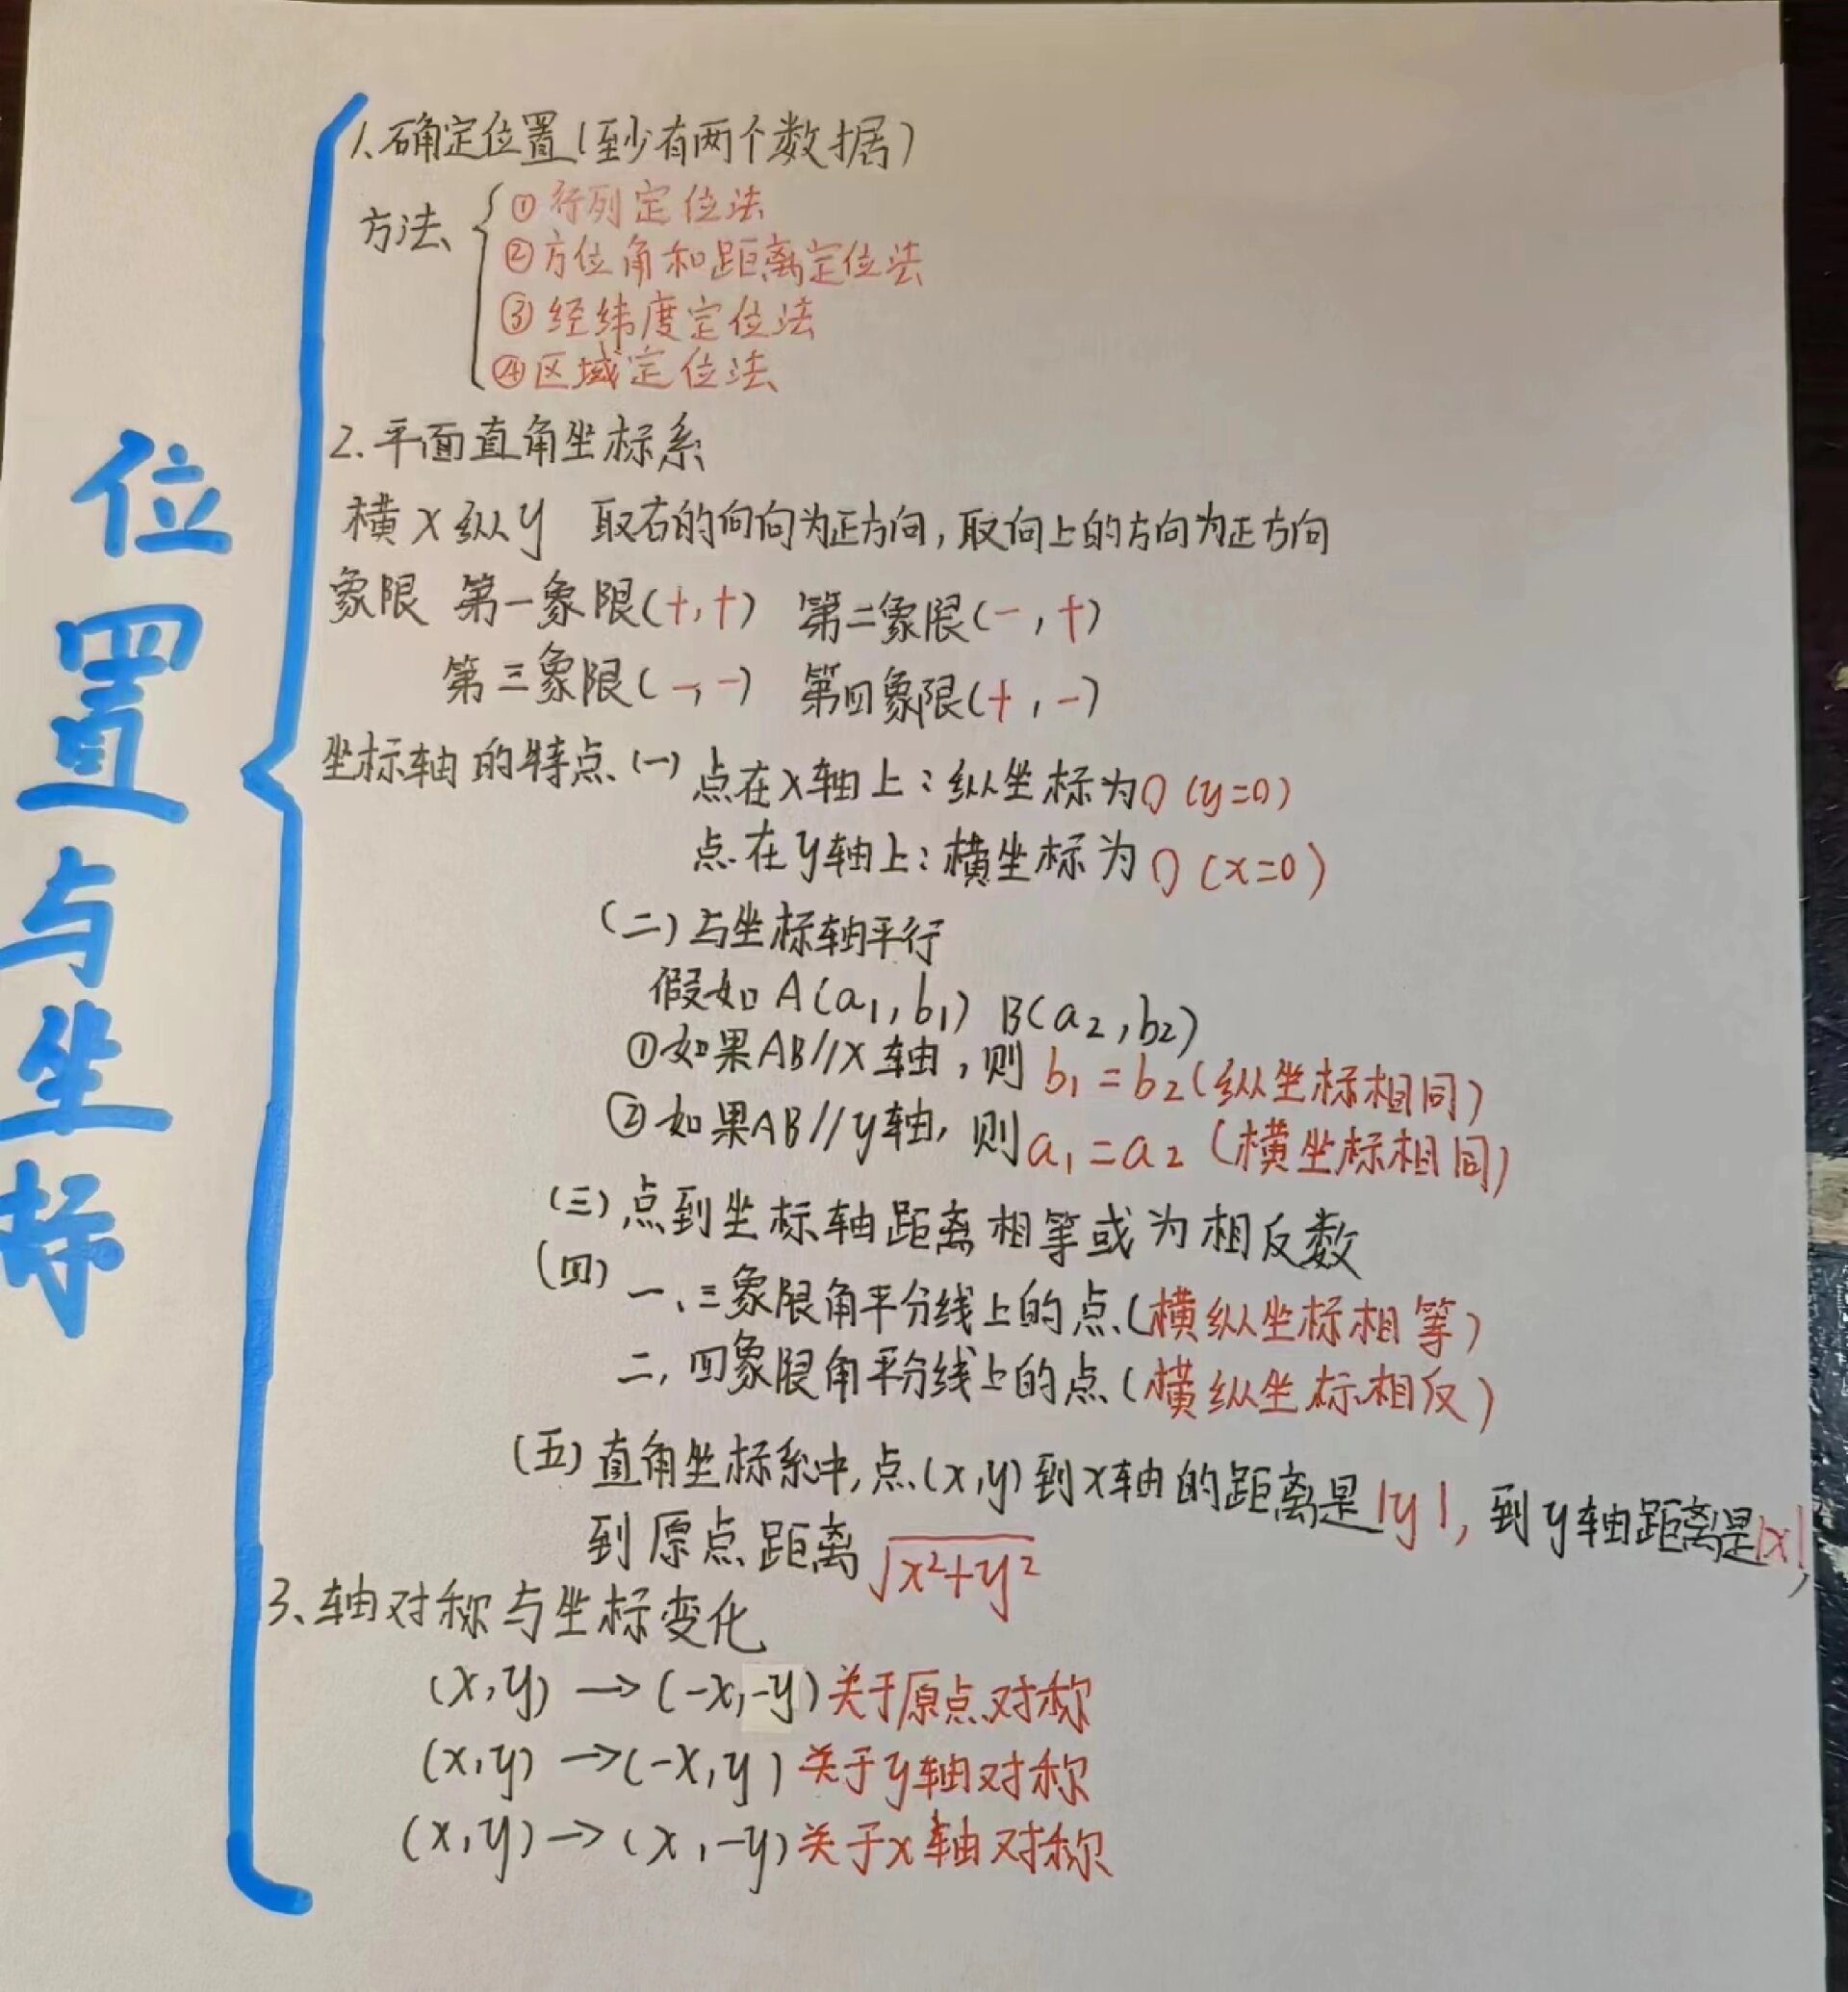 位置与坐标
1、确定位置(至少有两个数据)
方法
①行列定位法
②方位角和距离定位法
③经纬度定位法
④区域定位法
2.平面直角坐标系
横x纵y 取右的向向为正方向,取向上的方向为正方向
象限 第一象限(+,+) 第二象限(-,+)
第三象限(-,-) 第四象限(+,-)
坐标轴的特点(一)点在x轴上:纵坐标为0(y=0)
点在y轴上:横坐标为0(x=0)
(二)与坐标轴平行
假如A(a₁,b₁) B(a₂,b₂)
①如果AB//x轴,则b₁=b₂(纵坐标相同)
②如果AB//y轴,则a₁=a₂(横坐标相同)
(三)点到坐标轴距离相等或为相反数
(四)一、三象限角平分线上的点(横纵坐标相等)
二,四象限角平分线上的点(横纵坐标相反)
(五)直角坐标系中,点(x,y)到x轴的距离是|y|,到y轴距离是|x|,
到原点距离√x²+y²
3、轴对称与坐标变化
(x,y)→(-x,-y)关于原点对称
(x,y)→(-x,y)关于y轴对称
(x,y)→(x,-y)关于x轴对称